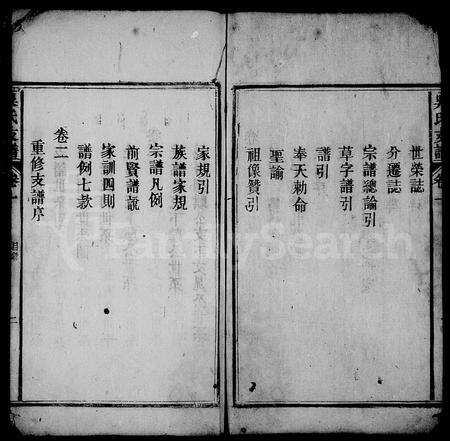 世榮誌
分遷誌
宗譜總論引
草字譜引
譜引
奉天勅命
聖諭
祖像贊引
家規引
族譜家規
宗譜凡例
前賢譜説
家訓四則
譜例七款
卷二
重修支譜序
FamilySearch